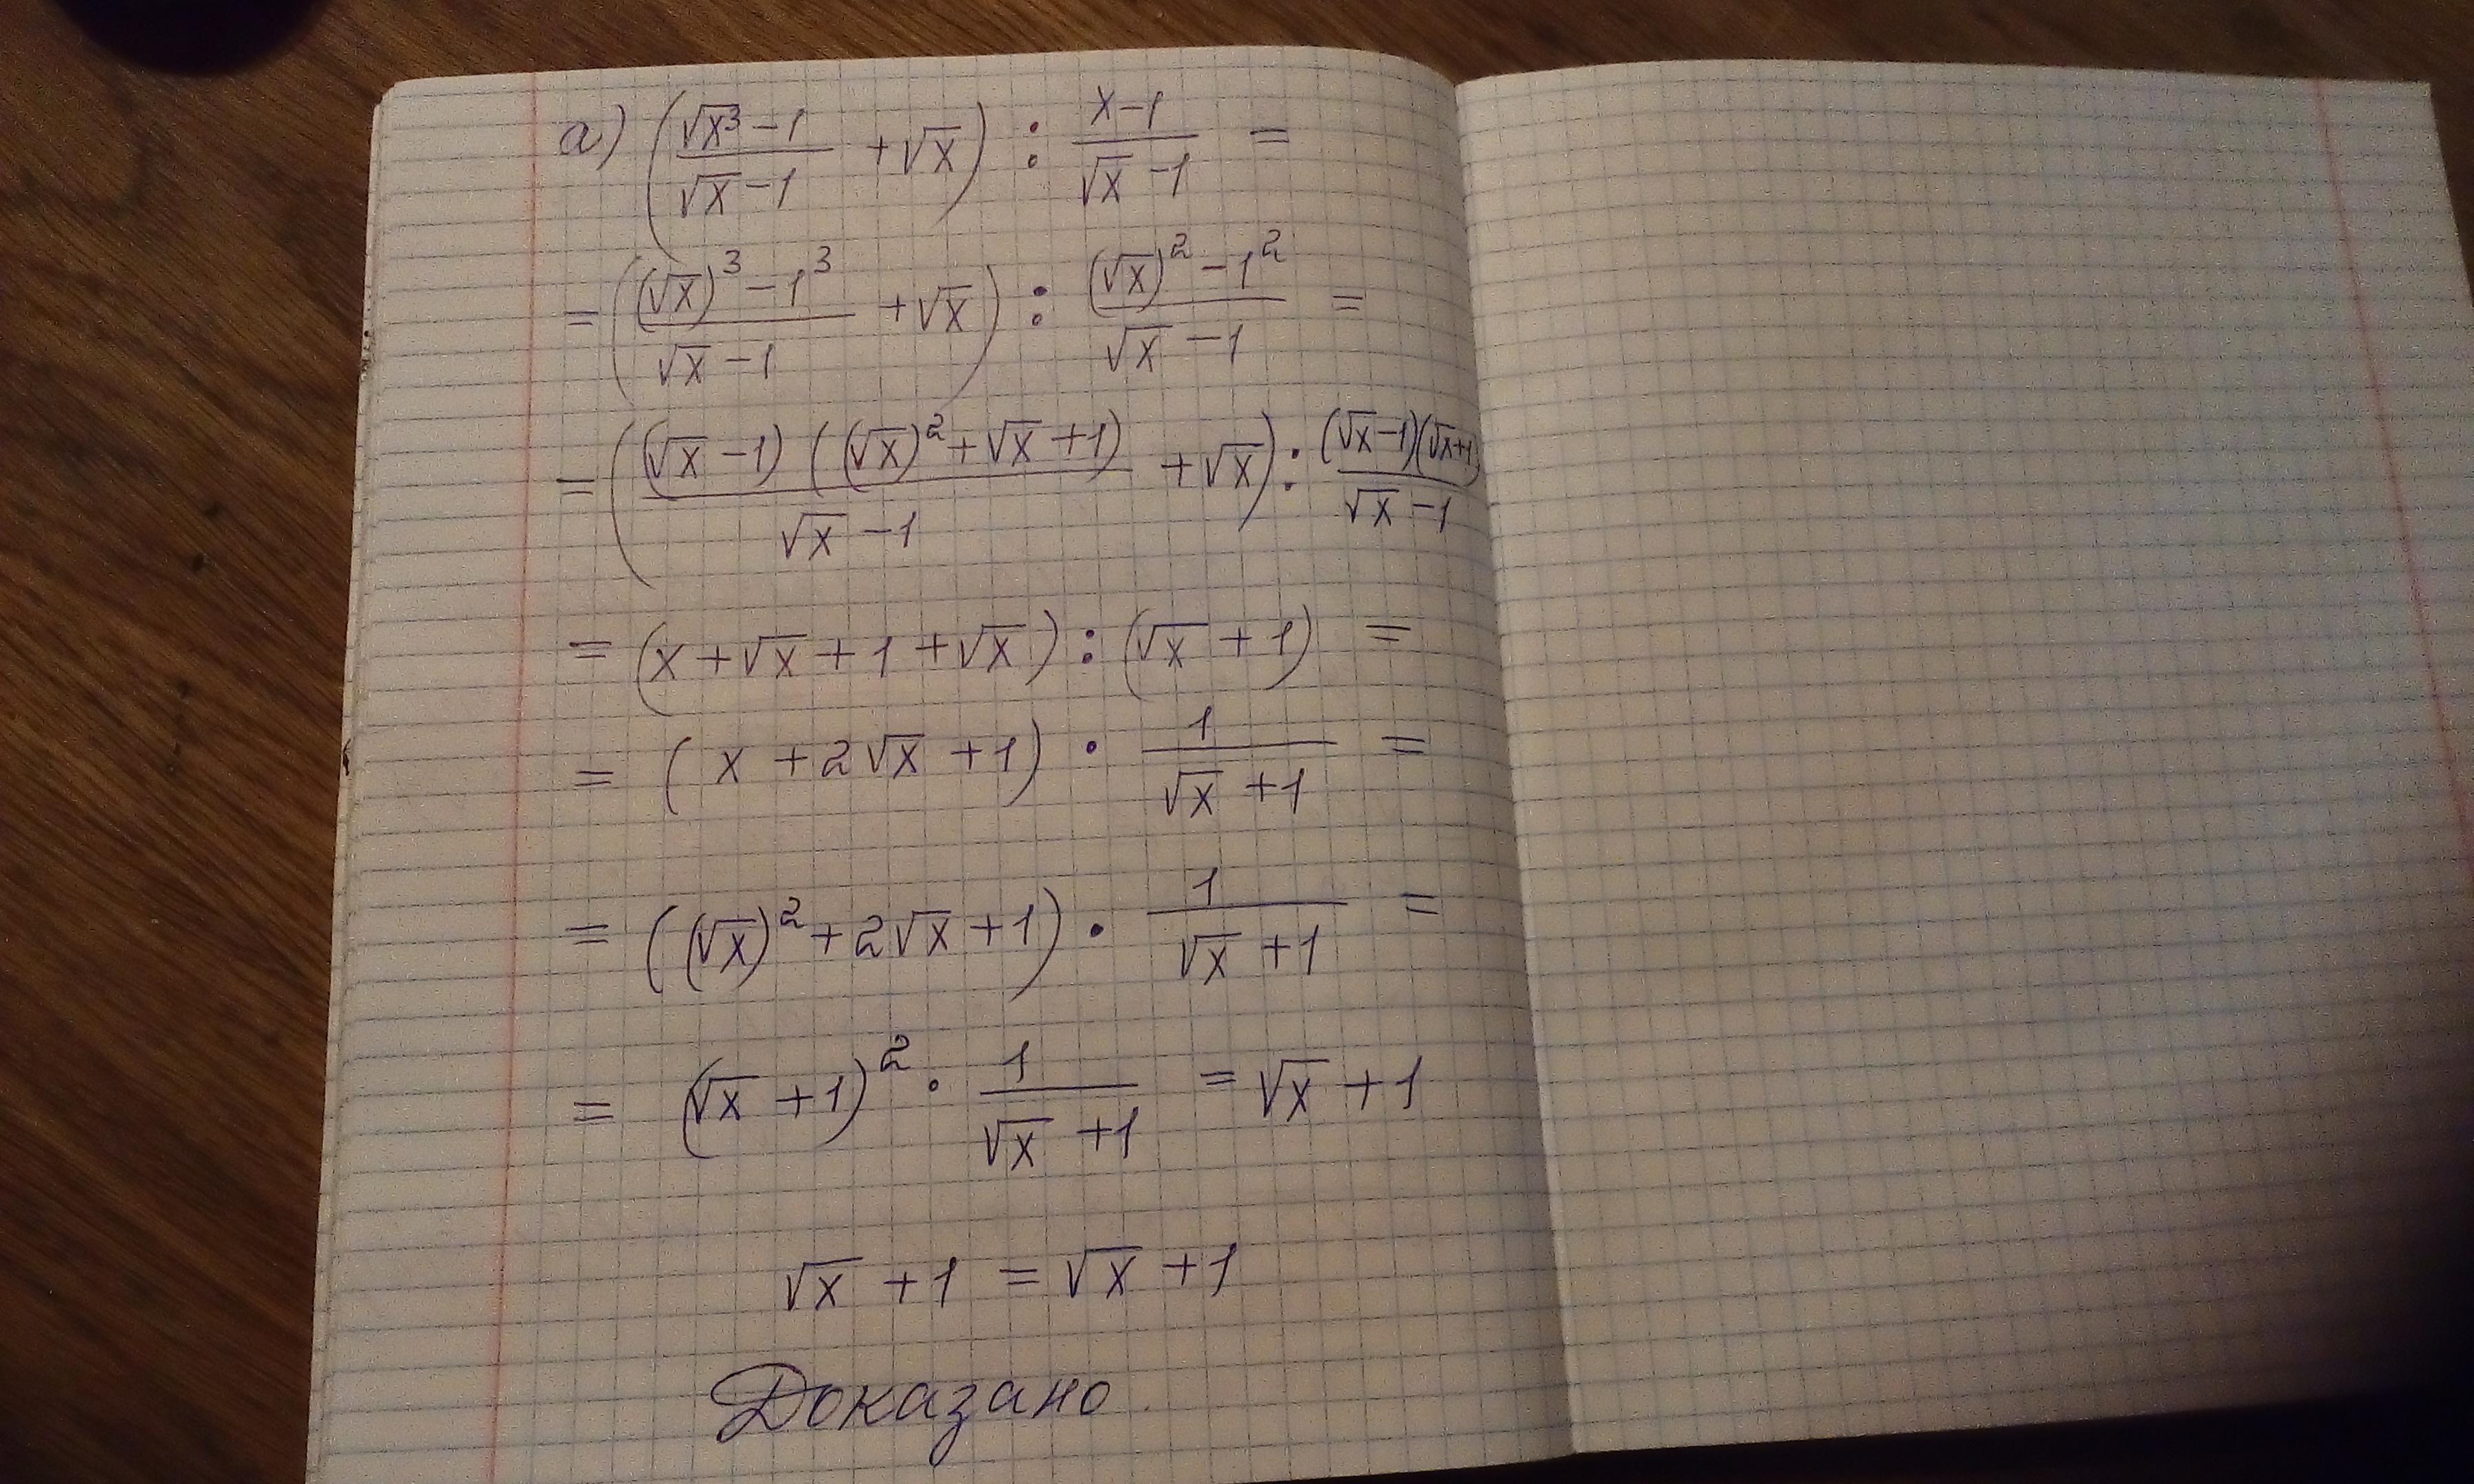 а) (√x³ − 1 / √x − 1 + √x) : x − 1 / √x − 1 =
= ((√x)³ − 1³ / √x − 1 + √x) : (√x)² − 1² / √x − 1 =
= ((√x − 1) ((√x)² + √x + 1) / √x − 1 + √x) : (√x − 1)(√x + 1) / √x − 1
= (x + √x + 1 + √x) : (√x + 1) =
= (x + 2√x + 1) · 1 / √x + 1 =
= ((√x)² + 2√x + 1) · 1 / √x + 1 =
= (√x + 1)² · 1 / √x + 1 = √x + 1
√x + 1 = √x + 1
Доказано.